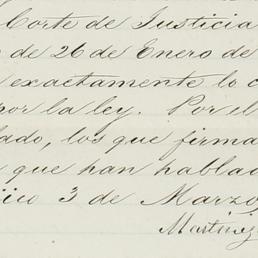 Corte de Justicia
de 26 de Enero de
exactamente lo c
por la ley. Por el
lado, los que firma
que han hablad
ico 3 de Marzo
Martinez